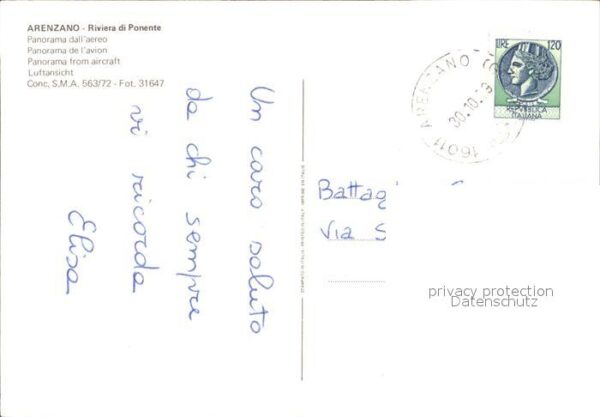 ARENZANO - Riviera di Ponente
Panorama dall'aereo
Panorama de l'avion
Panorama from aircraft
Luftansicht
Conc. S.M.A. 563/72 - Fot. 31647
Un caro saluto
da chi sempre
vi ricorda
Elisa
ARENZANO
30.10.
16011
LIRE 120
REPVBBLICA
ITALIANA
Battag
Via S
privacy protection
Datenschutz